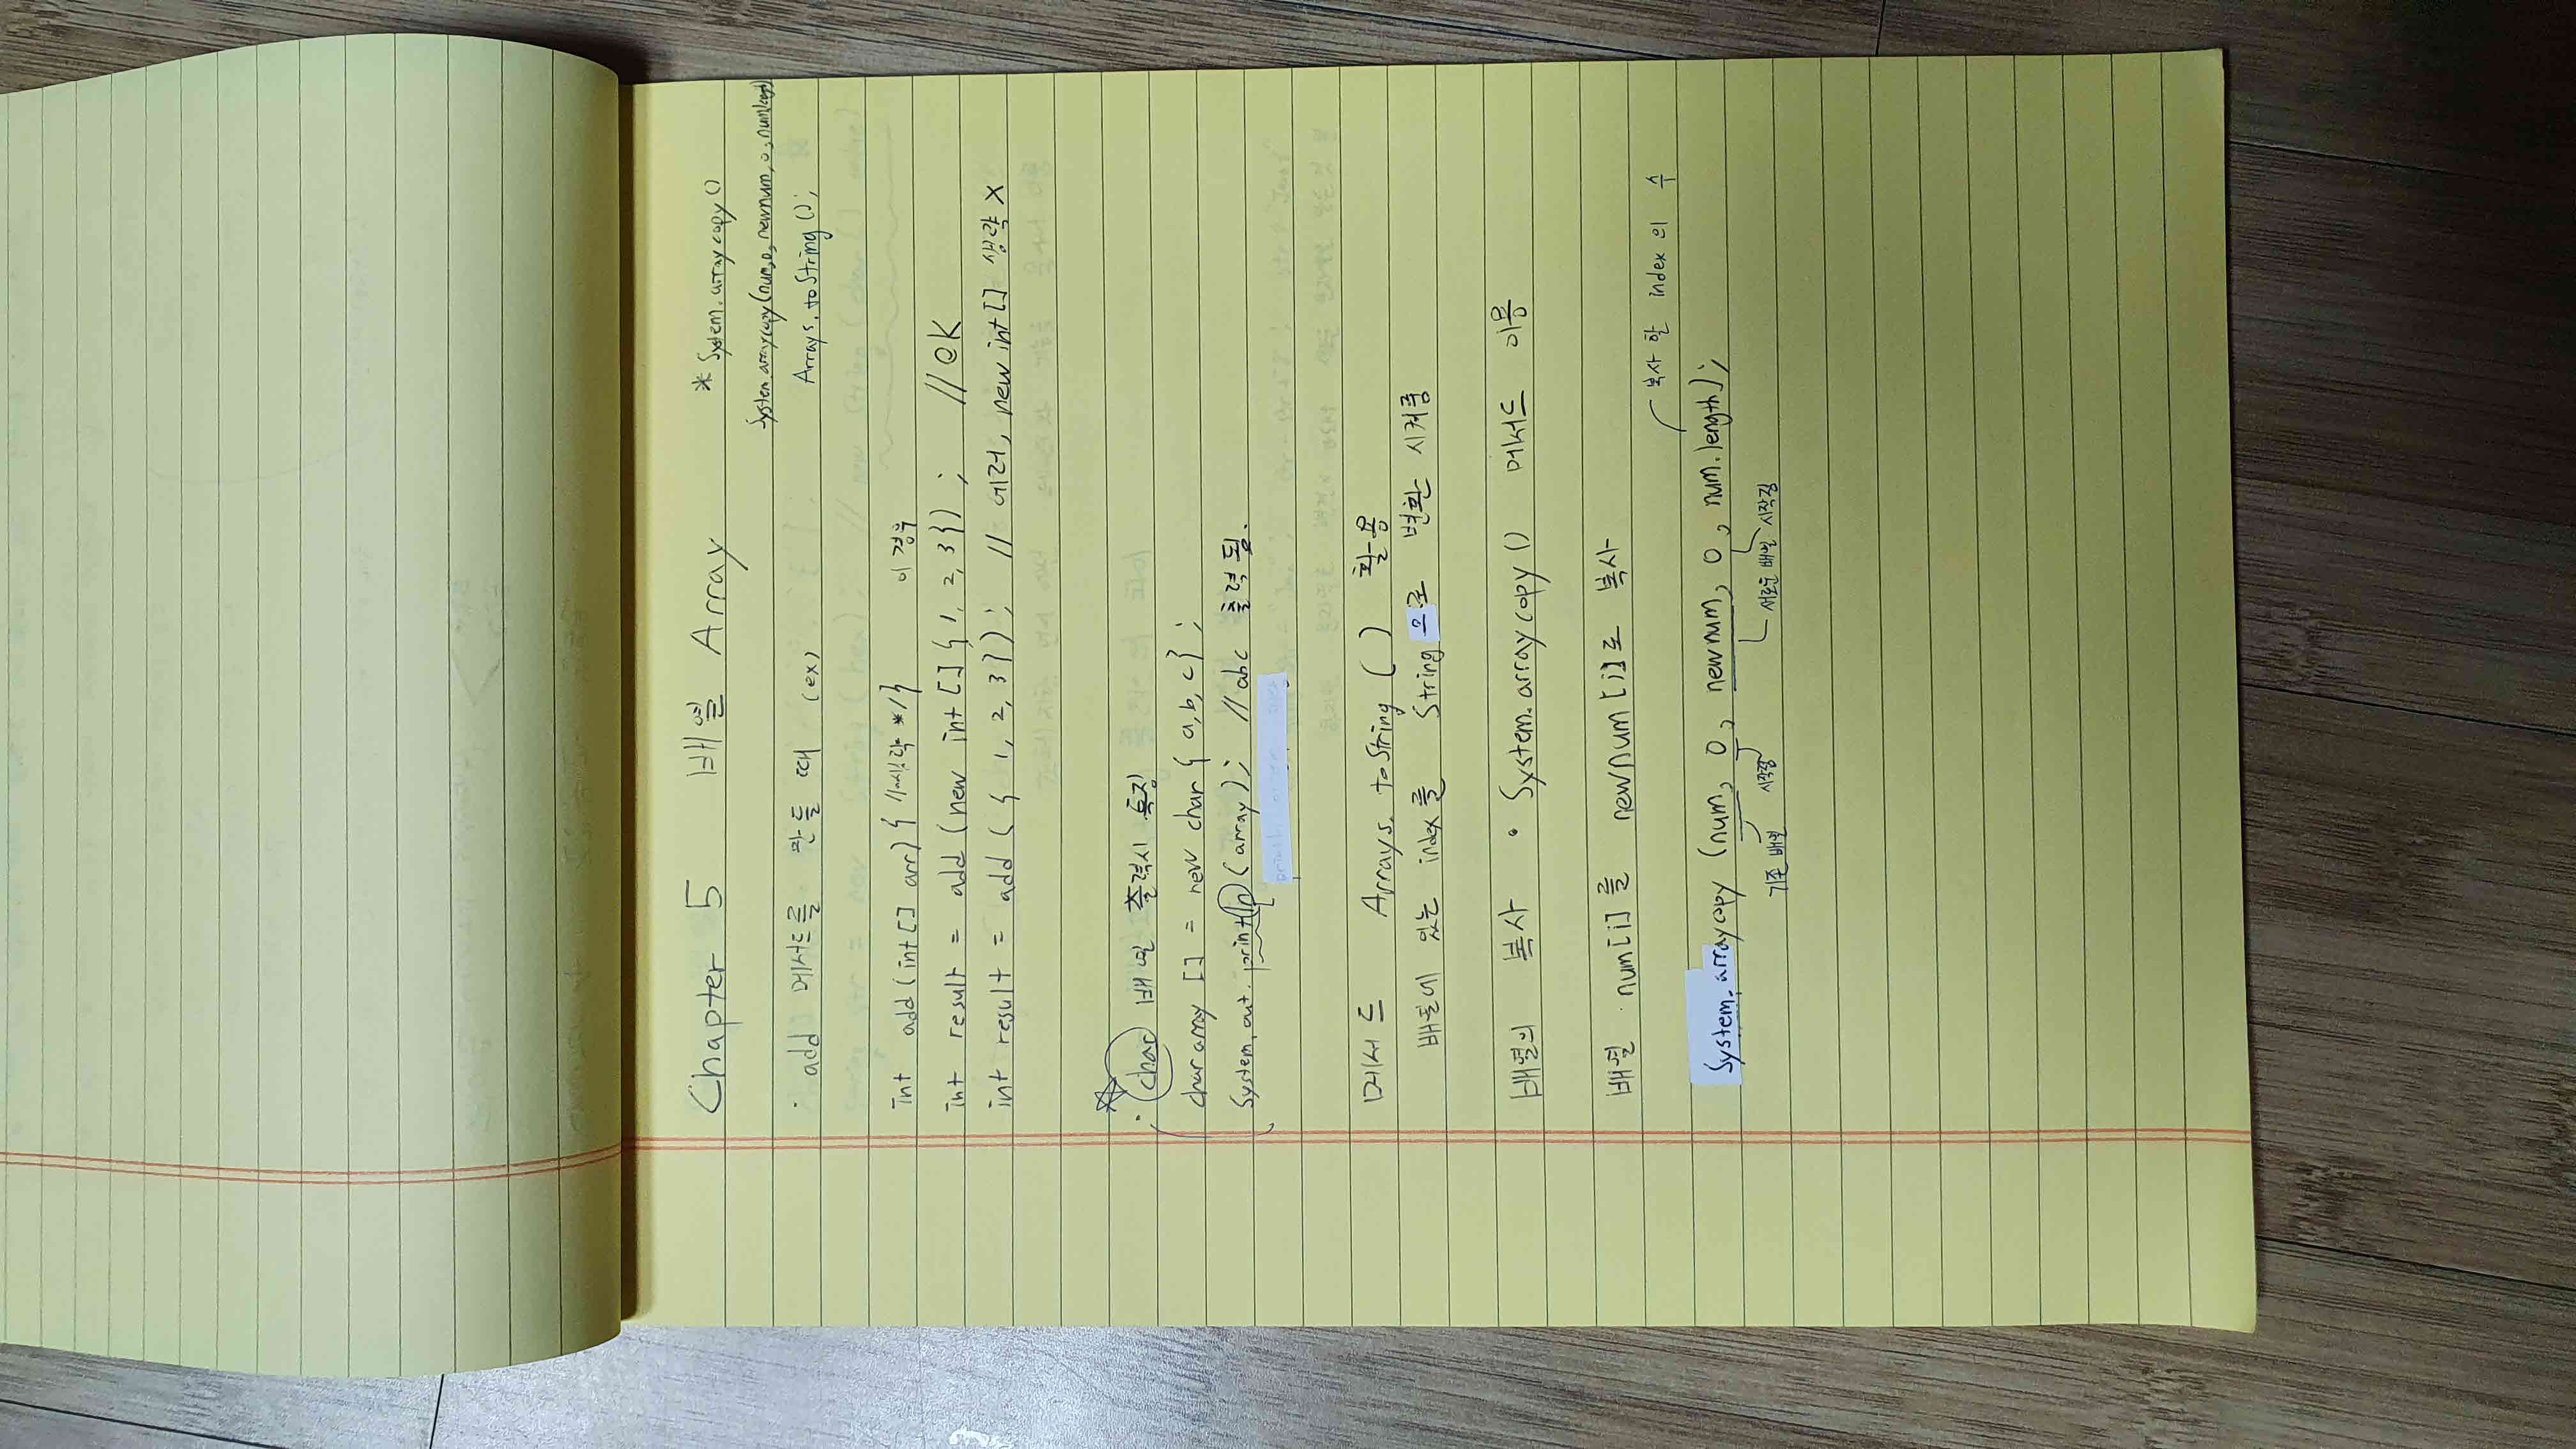 Chapter 5 배열 Array
* System.arraycopy()
System.arraycopy(num,0,newnum,0,num.length)
Arrays.toString();
· add 메서드를 만들 때 (ex)
int add(int[] arr) { //생략 */} 이 경우
int result = add (new int[] { 1, 2, 3}) ; // OK
int result = add ( { 1, 2, 3 } ) ; // 에러, new int[] 생략 X
· char 배열 출력시 특징
char array [] = new char { a, b, c } ;
System.out.println (array) ; // abc 출력됨.
메서드 Arrays.toString ( ) 활용
배열에 있는 index를 String으로 변환 시켜줌
배열의 복사 • System.arraycopy () 메서드 이용
배열 num[i]를 newnum[i]로 복사
복사 할 index 의 수
System.arraycopy (num, 0, newnum, 0, num.length);
기존 배열 시작점 새로운 배열 시작점